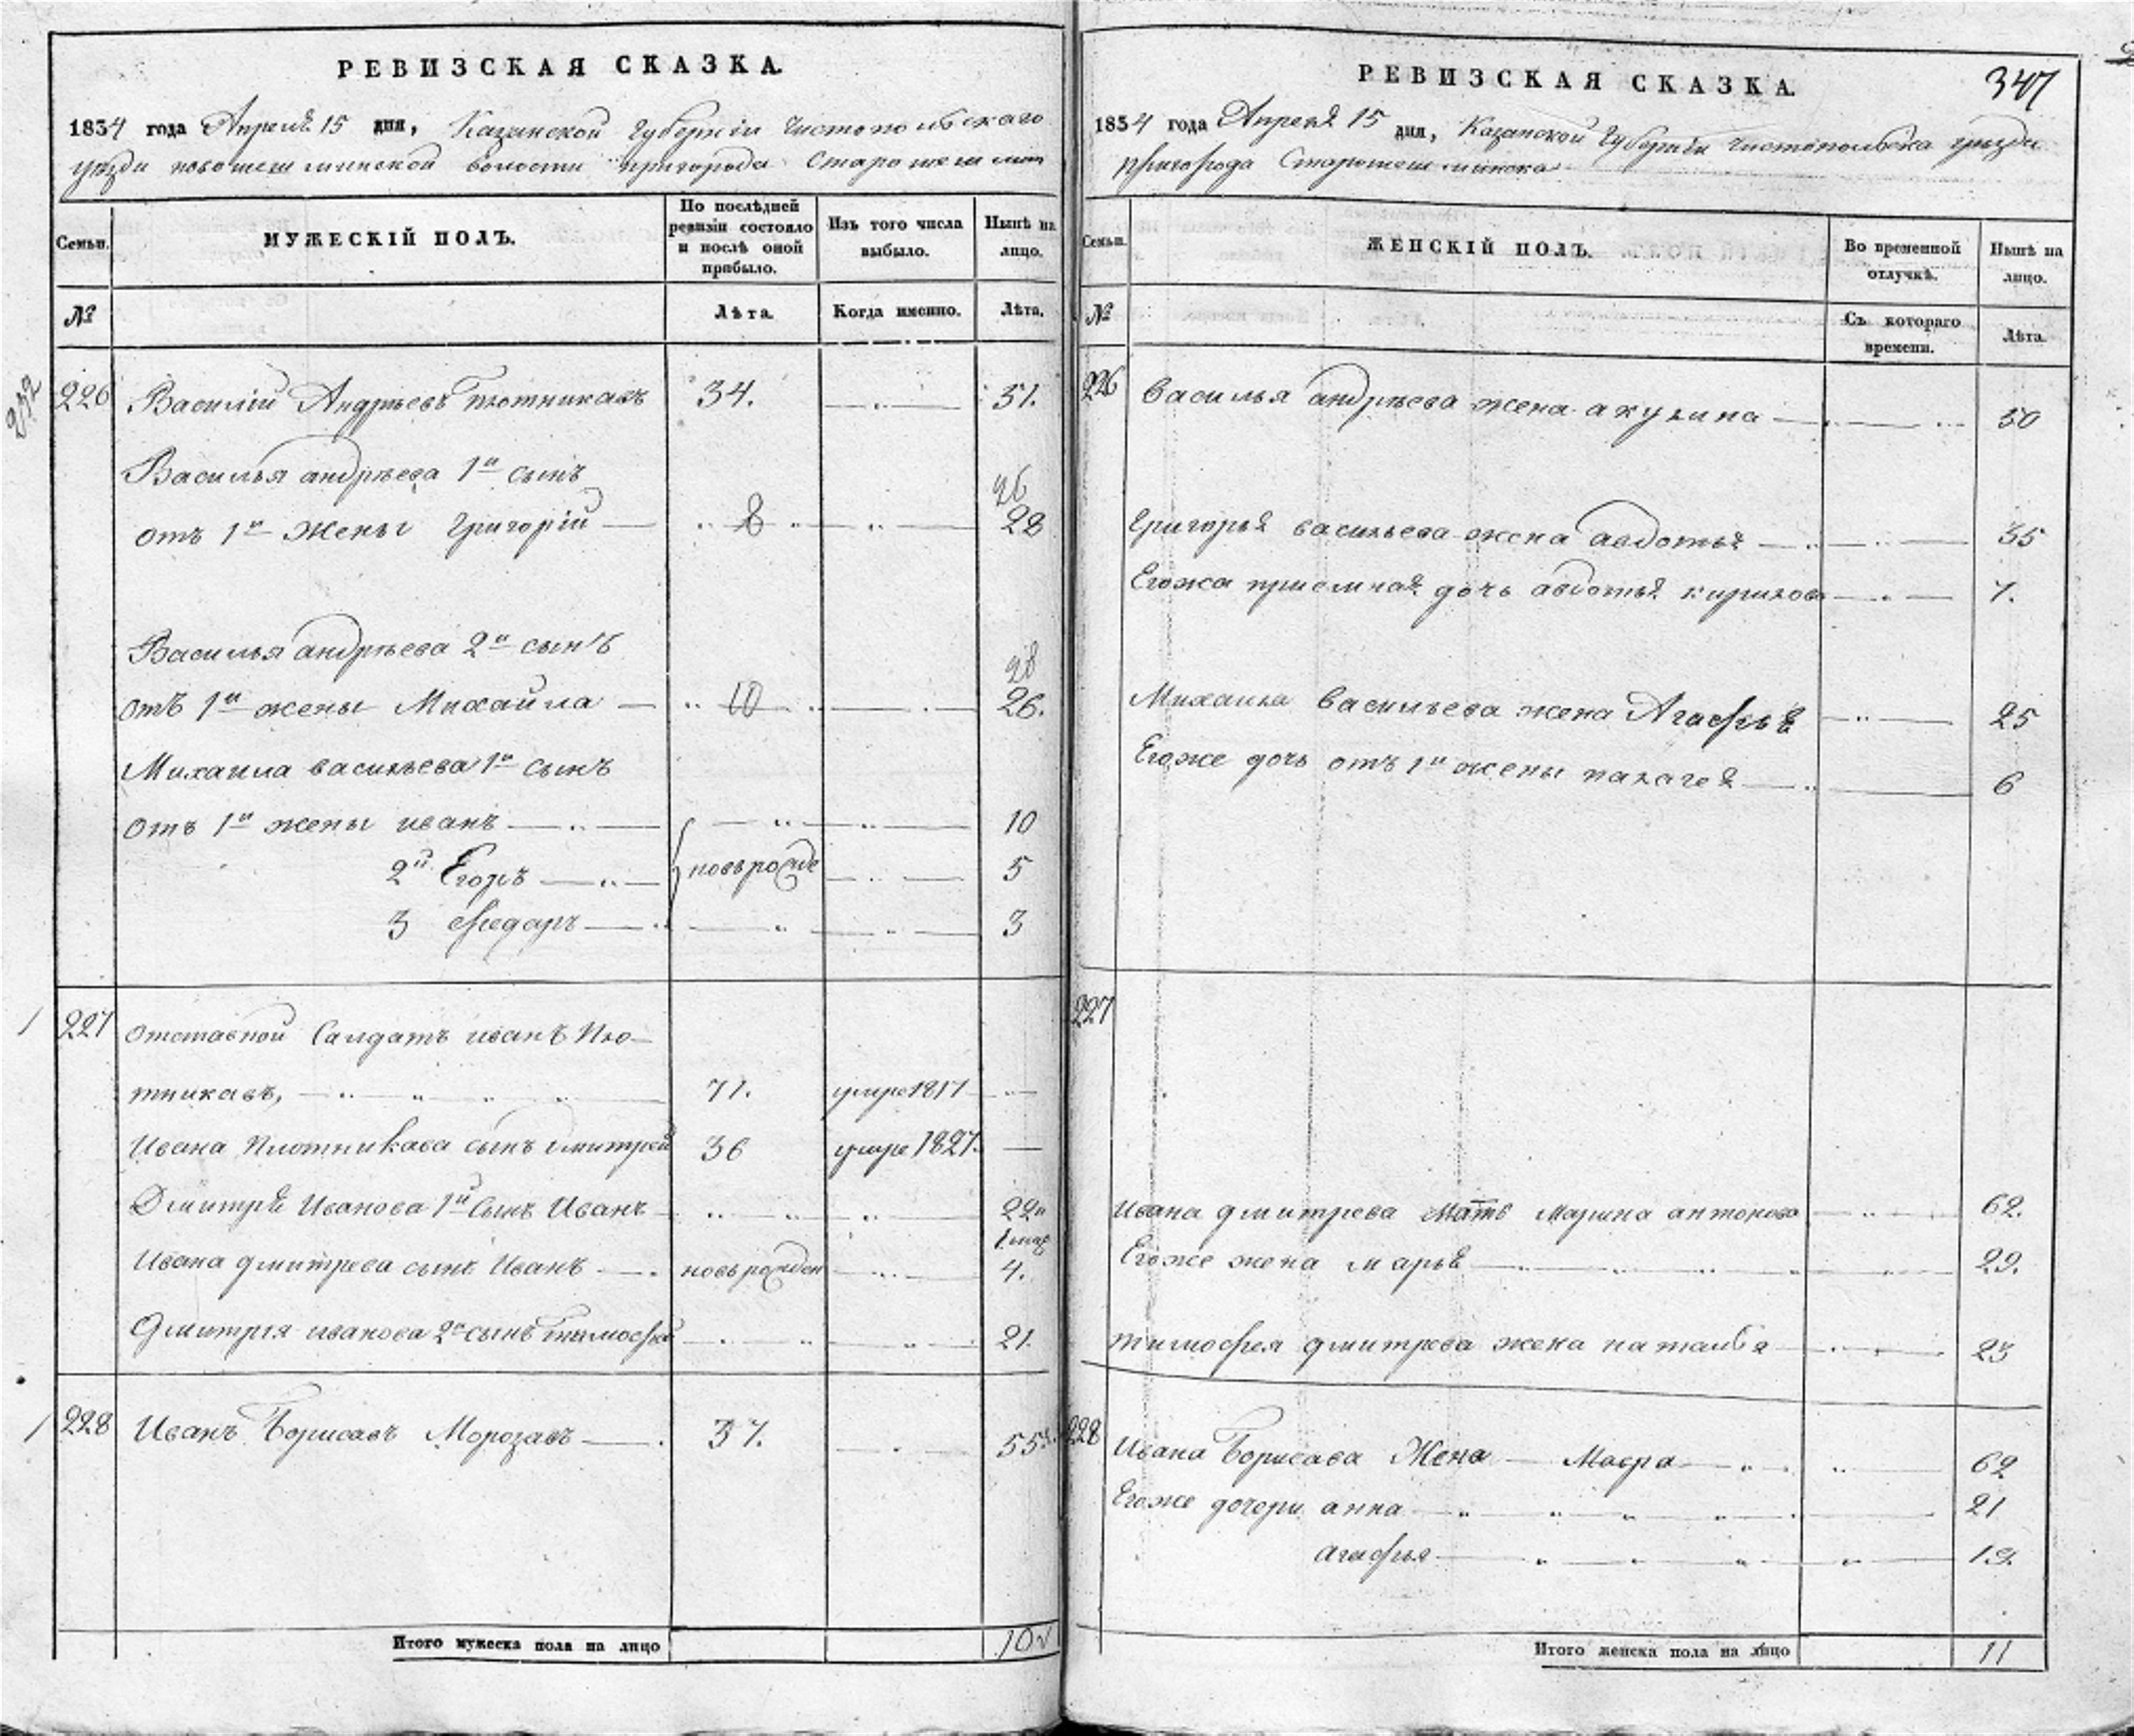 РЕВИЗСКАЯ СКАЗКА.
1834 года Апреля 15 дня, Казанской Губернии Чистопольскаго
уезди новошешминской волости пригорода Старошешмин
Семьи.
МУЖЕСКІЙ ПОЛЪ.
По послѣдней ревизіи состояло и послѣ оной прибыло.
Изъ того числа выбыло.
Нынѣ на лицо.
№
Лѣта.
Когда именно.
Лѣта.
232
226 Василій Андрѣевъ Плотникавъ 34. 51.
Василья андрѣева 1й сынъ 26
отъ 1й жены Григорій 8 28
Василья андрѣева 2й сынъ 28
отъ 1й жены Михайла 10 26.
Михаила васильева 1й сынъ
отъ 1й жены иванъ 10
2й Егоръ новърожде 5
3 Ѳедаръ 3
227 отставной Салдатъ иванъ Пло-
тникавъ, 71. умре 1817
Ивана Плотникава сынъ дмитрей 36 умре 1827.
Дмитрія Иванова 1й Сынъ Иванъ 22
Ивана дмитрева сынъ Иванъ новърожден 4.
Дмитрія иванова 2й сынъ тимофей 21.
228 Иванъ Борисавъ Морозавъ 37. 55
Итого мужеска пола на лицо 10
РЕВИЗСКАЯ СКАЗКА.
347
1834 года Апреля 15 дня, Казанской Губернии Чистопольска уезди
пригорода Старошешминска
Семьи.
ЖЕНСКІЙ ПОЛЪ.
Во временной отлучкѣ.
Нынѣ на лицо.
№
Съ котораго времени.
Лѣта.
226 Василья андрѣева жена акулина 50
Григорья васильева жена авдотья 35
Егожа приемная дочь авдотья кирилов 7.
Михаила васильева жена Агафья 25
Егоже дочь отъ 1й жены палагея 6
227
Ивана дмитрева мать Марина антонова 62.
Егоже жена марья 29.
тимофея дмитрева жена наталья 23
228 Ивана Борисава Жена Мавра 62
Егоже дочери анна 21
агафья 19.
Итого женска пола на лицо 11